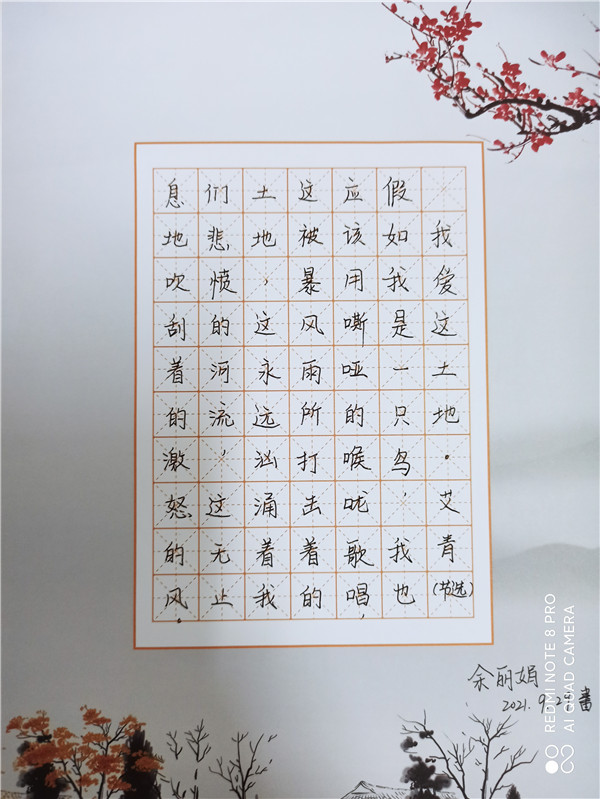 我爱这土地·艾青(节选)
假如我是一只鸟,我也
应该用嘶哑的喉咙歌唱,
这被暴风雨所打击着的
土地,这永远汹涌着我
们悲愤的河流,这无止
息地吹刮着的激怒的风。
余丽娟
2021.9.24 書
REDMI NOTE 8 PRO
AI QUAD CAMERA